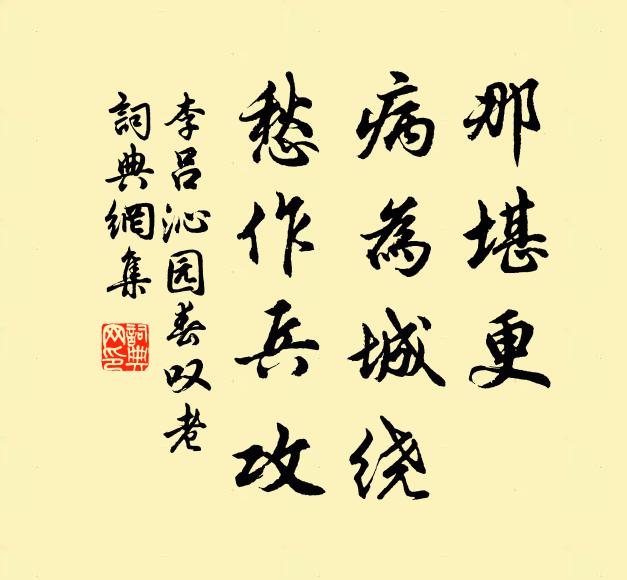 那堪更
病為城绕
愁作兵攻
李吕沁园春叹老
詞典網集
詞典網印